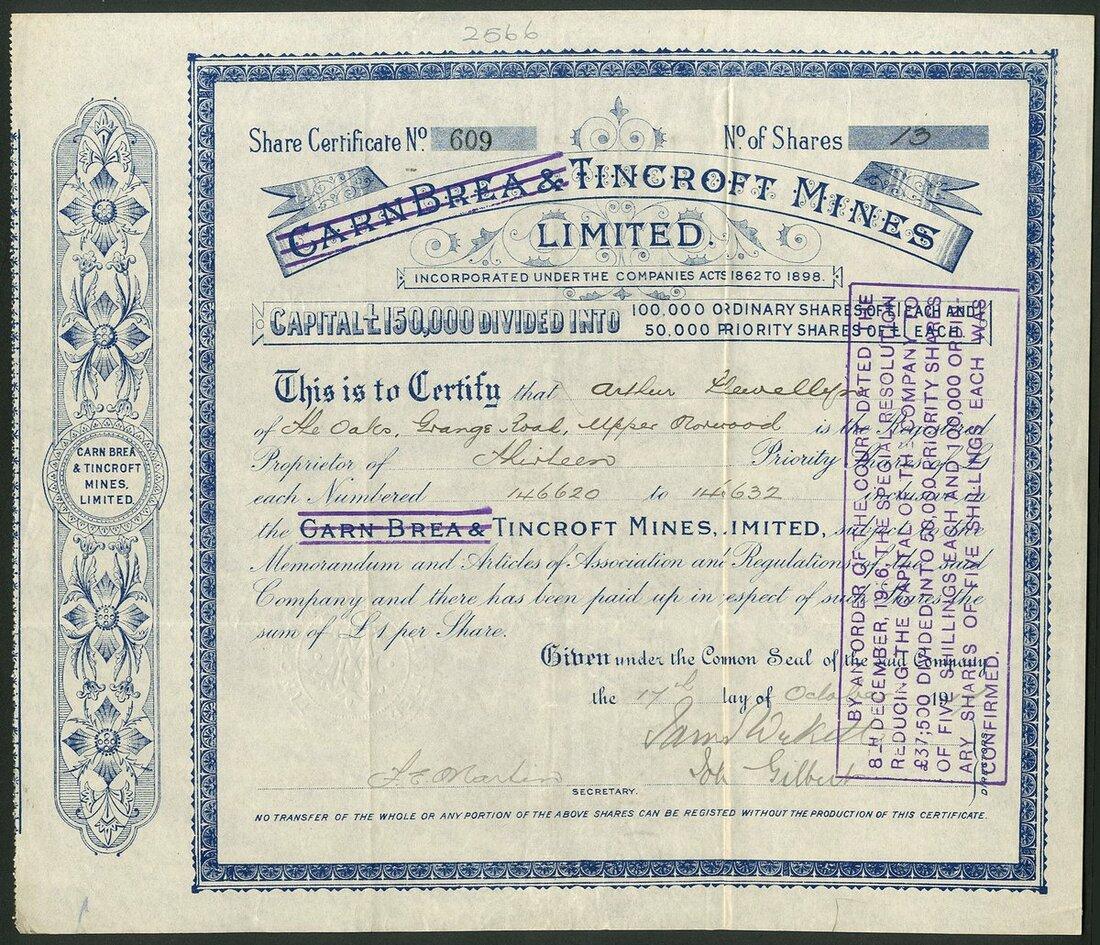 2566
Share Certificate No. 609
No. of Shares 13
CARN BREA & TINCROFT MINES
LIMITED.
INCORPORATED UNDER THE COMPANIES ACTS 1862 TO 1898.
CAPITAL £150,000 DIVIDED INTO
100,000 ORDINARY SHARES OF £1 EACH AND
50,000 PRIORITY SHARES OF £1 EACH
This is to Certify that Arthur Llewellyn
of The Oaks, Grange Road, Upper Norwood is the Registered
Proprietor of Thirteen Priority Shares of £1
each Numbered 146620 to 146632 inclusive in
the CARN BREA & TINCROFT MINES, IMITED, subject to the
Memorandum and Articles of Association and Regulations of the said
Company and there has been paid up in espect of such Shares the
sum of £1 per Share.
Given under the Comon Seal of the said Company
the 17th day of October 19
Gilbert
DIRECTORS
F. E. Martin
SECRETARY.
NO TRANSFER OF THE WHOLE OR ANY PORTION OF THE ABOVE SHARES CAN BE REGISTERED WITHOUT THE PRODUCTION OF THIS CERTIFICATE.
CARN BREA
& TINCROFT
MINES,
LIMITED.
BY AN ORDER OF THE COURT DATED THE
8TH DECEMBER, 19 6, THE SPECIAL RESOLUTION
REDUCING THE CAPITAL OF THE COMPANY TO
£37,500 DIVIDED INTO 50,000 PRIORITY SHARES
OF FIVE SHILLINGS EACH AND 100,000 ORDIN-
ARY SHARES OF FIVE SHILLINGS EACH WAS
CONFIRMED.